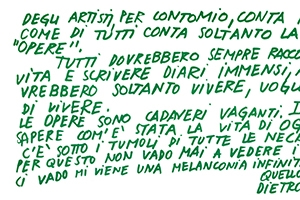 DEGLI ARTISTI, PER CONTO MIO, CONTA
COME DI TUTTI CONTA SOLTANTO LA
"OPERE".
TUTTI DOVREBBERO SEMPRE RACC
VITA E SCRIVERE DIARI IMMENSI,
VREBBERO SOLTANTO VIVERE, VOGL
DI VIVERE.
LE OPERE SONO CADAVERI VAGANTI. I
SAPERE COM'È STATA LA VITA DI OG
C'È SOTTO I TUMOLI DI TUTTE LE NECR
PER QUESTO NON VADO MAI A VEDERE I
CI VADO MI VIENE UNA MELANCONIA INFINIT
QUELLO
DIETRO